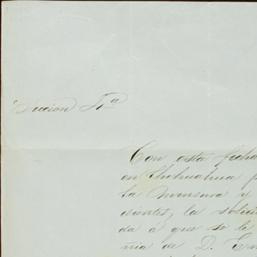 Seccion 4ª
Con esta fecha
en Chihuahua p
la Mensura y
dientes, la solici
da á que se le
ñia de D. Em